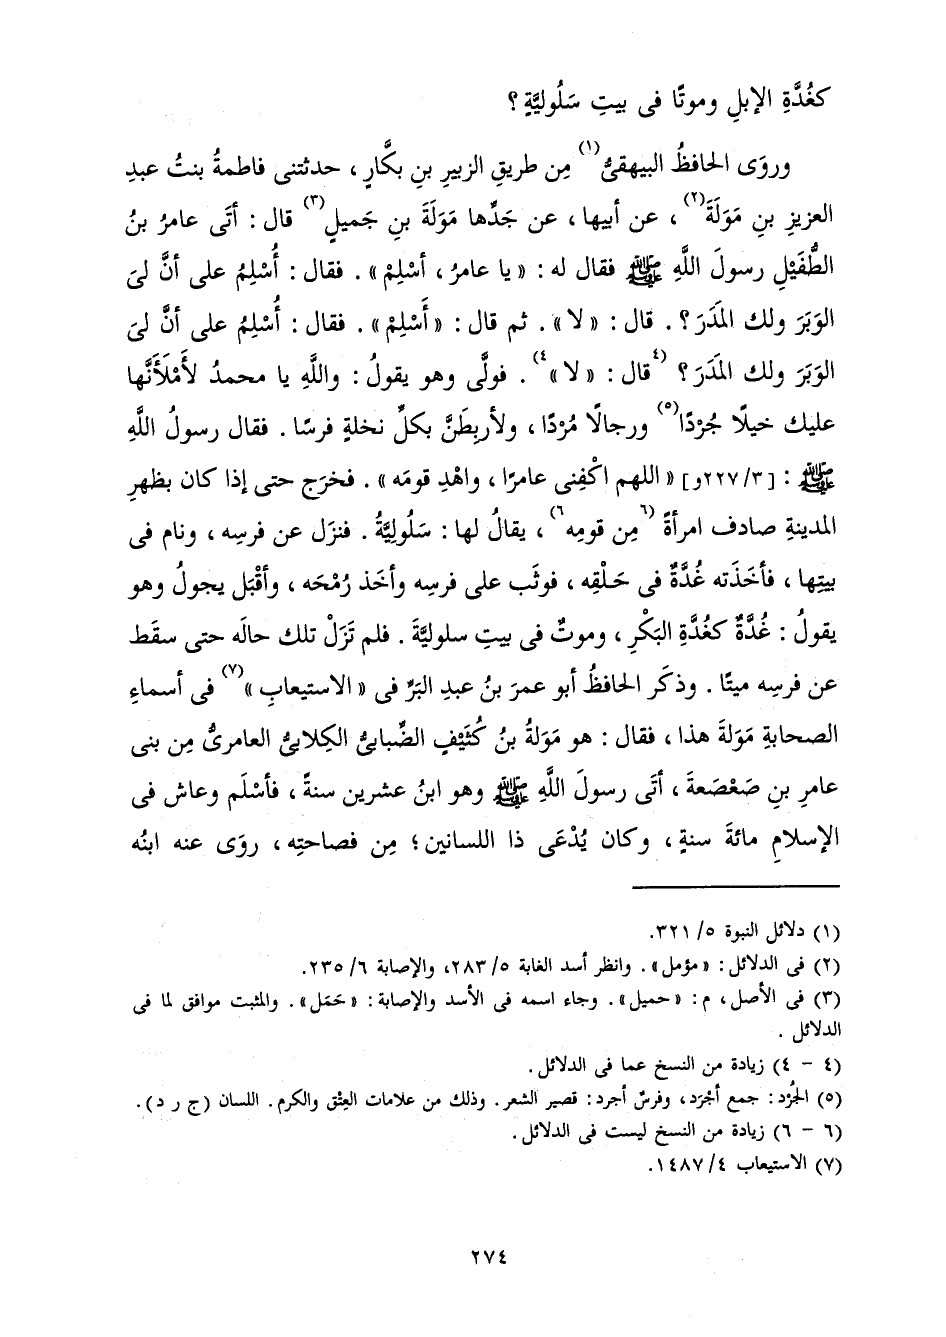 كغُدَّةِ الإبلِ وموتًا فى بيتِ سَلُوليَّةٍ ؟
وروَى الحافظُ البيهقىُّ(١) مِن طريقِ الزبيرِ بنِ بكَّارٍ ، حدثتنى فاطمةُ بنتُ عبدِ
العزيزِ بنِ مَوَلَةَ(٢) ، عن أبيها ، عن جَدِّها مَوَلَةَ بنِ جَميلٍ(٣) قال : أتَى عامرُ بنُ
الطُّفَيْلِ رسولَ اللَّهِ ﷺ فقال له : « يا عامرُ ، أسْلِمْ » . فقال : أُسْلِمُ على أنَّ لىَ
الوَبَرَ ولك المَدَرَ ؟ . قال : « لا » . ثم قال : « أَسْلِمْ » . فقال : أُسْلِمُ على أنَّ لىَ
الوَبَرَ ولك المَدَرَ ؟ (٤قال : « لا »٤) . فولَّى وهو يقولُ : واللَّهِ يا محمدُ لأَمْلَأَنَّها
عليك خيلًا جُرْدًا(٥) ورجالًا مُرْدًا ، ولأربِطَنَّ بكلِّ نخلةٍ فرسًا . فقال رسولُ اللَّهِ
ﷺ : [٢٢٧/٣و] « اللهم اكْفِنى عامرًا ، واهْدِ قومَه » . فخرَج حتى إذا كان بظهرِ
المدينةِ صادف امرأةً (٦مِن قومِه٦) ، يقالُ لها : سَلُوليَّةُ . فنزَل عن فرسِه ، ونام فى
بيتِها ، فأخَذَته غُدَّةٌ فى حَلْقِه ، فوثَب على فرسِه وأخَذ رُمْحَه ، وأقْبَل يجولُ وهو
يقولُ : غُدَّةٌ كغُدَّةِ البَكْرِ ، وموتٌ فى بيتِ سلوليَّةَ . فلم تَزَلْ تلك حالَه حتى سقَط
عن فرسِه ميتًا . وذكَر الحافظُ أبو عمرَ بنُ عبدِ البَرِّ فى « الاستيعابِ »(٧) فى أسماءِ
الصحابةِ مَوَلةَ هذا ، فقال : هو مَوَلةُ بنُ كُثَيْفٍ الضِّبابىُّ الكِلابىُّ العامرىُّ مِن بنى
عامرِ بنِ صَعْصَعةَ ، أتَى رسولَ اللَّهِ ﷺ وهو ابنُ عشرين سنةً ، فأسْلَم وعاش فى
الإسلامِ مائةَ سنةٍ ، وكان يُدْعَى ذا اللسانين ؛ مِن فصاحتِه ، روَى عنه ابنُه
(١) دلائل النبوة ٥/ ٣٢١.
(٢) فى الدلائل : « مؤمل » . وانظر أسد الغابة ٥/ ٢٨٣، والإصابة ٦/ ٢٣٥.
(٣) فى الأصل ، م : « حميل » . وجاء اسمه فى الأسد والإصابة : « حَمَل » . والمثبت موافق لما فى
الدلائل .
(٤ - ٤) زيادة من النسخ عما فى الدلائل.
(٥) الجُرْد : جمع أجْرَد ، وفرسٌ أجرد : قصير الشعر . وذلك من علامات العِتْق والكرم . اللسان (ج ر د) .
(٦ - ٦) زيادة من النسخ ليست فى الدلائل.
(٧) الاستيعاب ٤/ ١٤٨٧.
٢٧٤